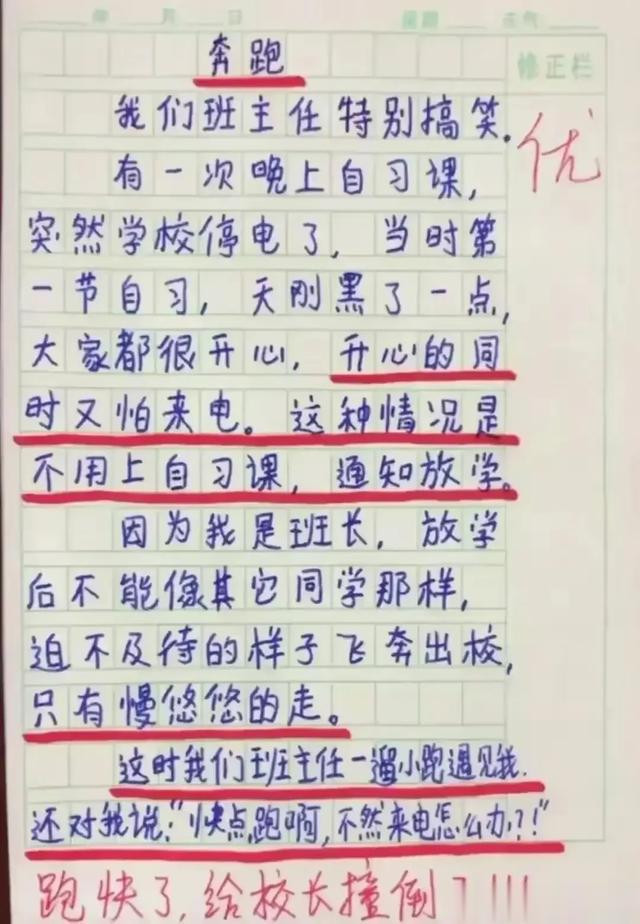 年 月 日 星期 天气
奔跑
修正栏
我们班主任特别搞笑.
优
有一次晚上自习课,
突然学校停电了, 当时第
一节自习, 天刚黑了一点,
大家都很开心, 开心的同
时又怕来电。这种情况是
不用上自习课, 通知放学。
因为我是班长, 放学
后不能像其它同学那样,
迫不及待的样子飞奔出校,
只有慢悠悠的走。
这时我们班主任一遛小跑遇见我.
还对我说:"快点跑啊,不然来电怎么办?!"
跑快了,给校长撞倒了!!!